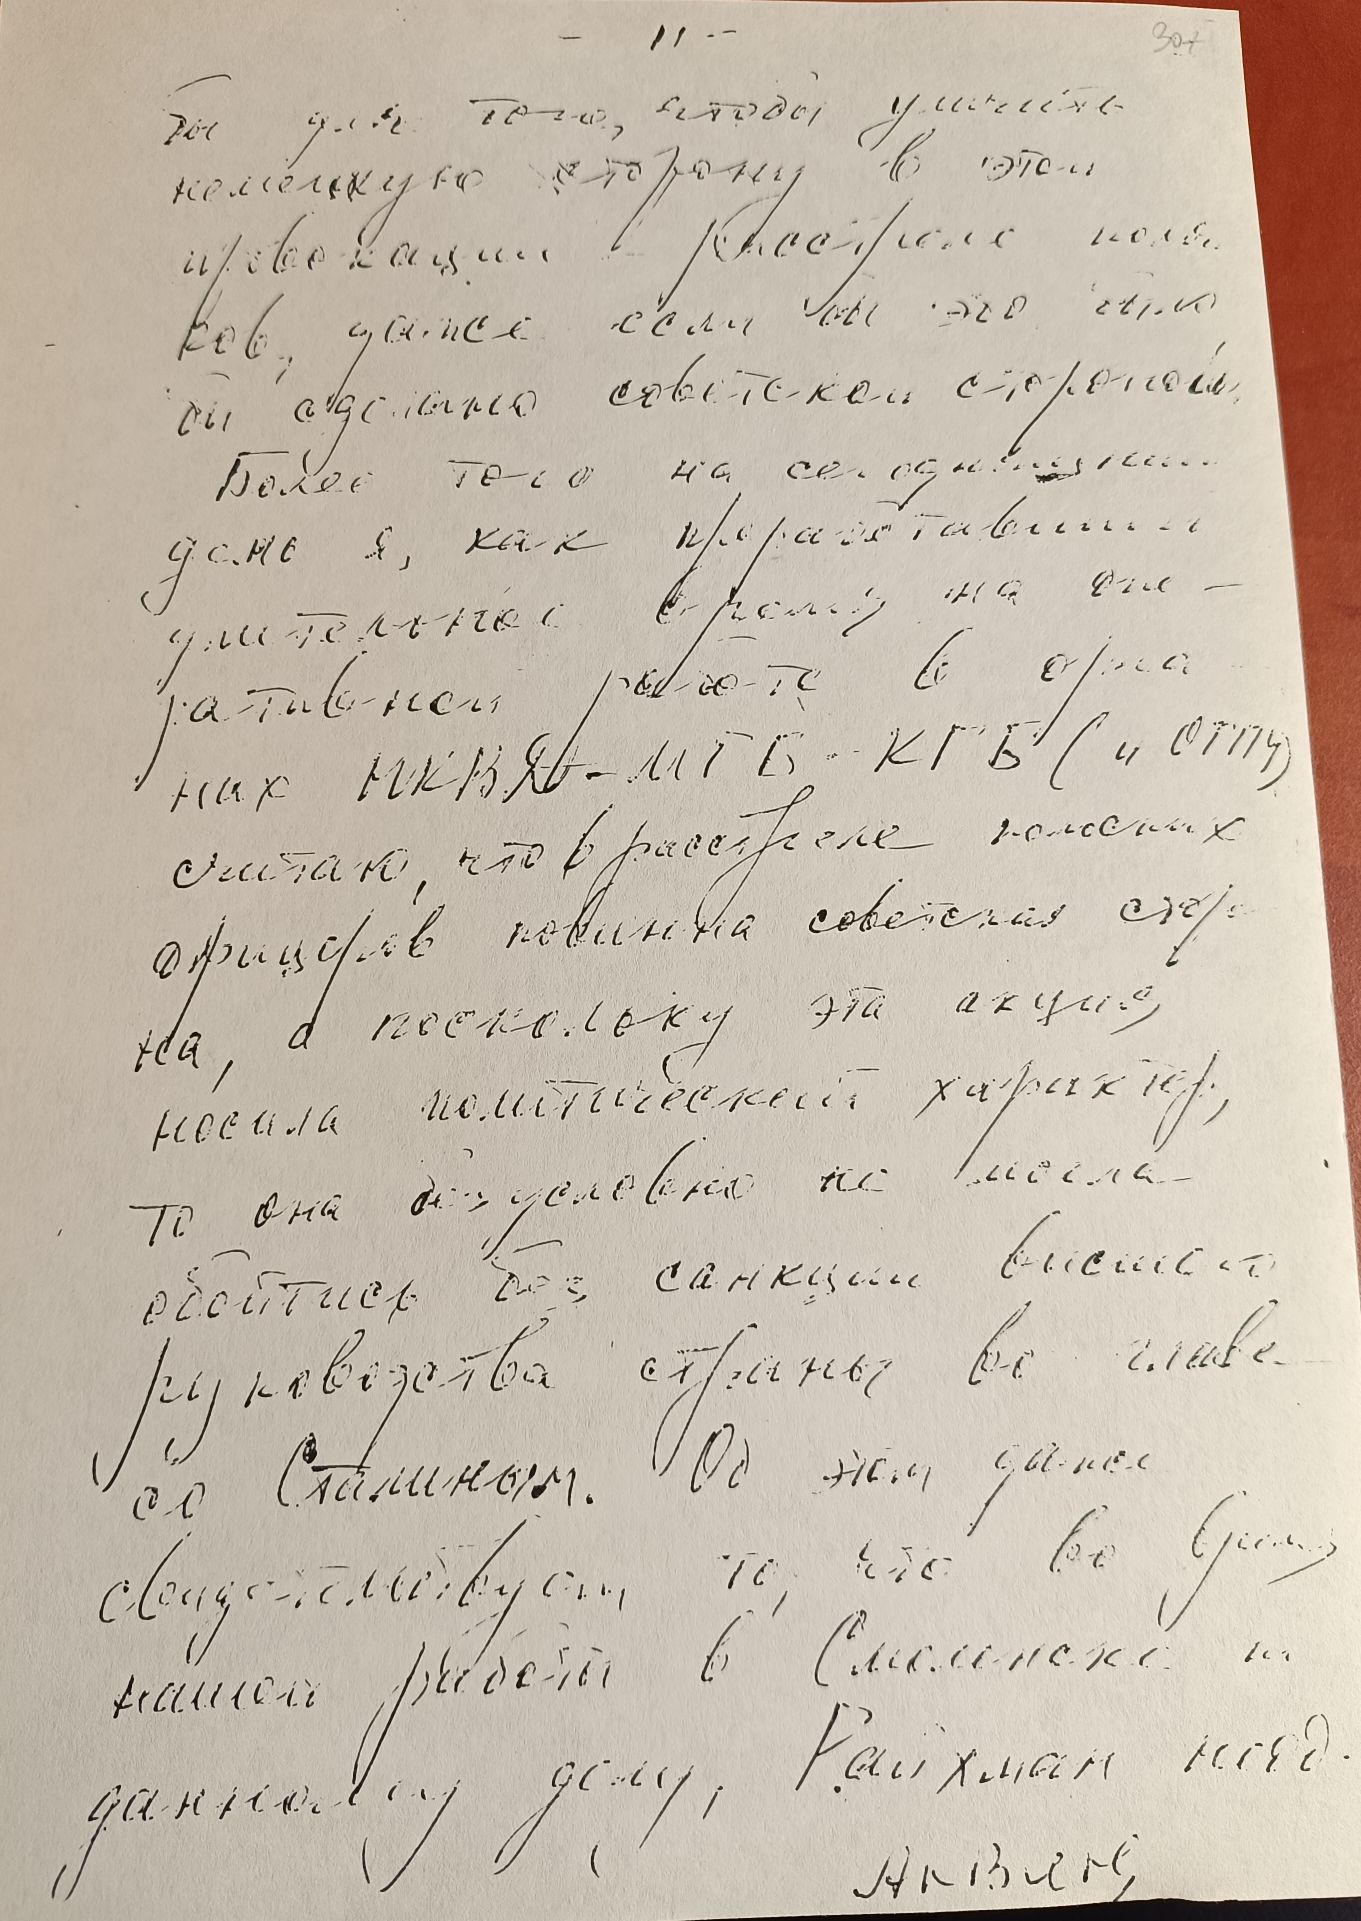 - 11 -
307
ты для того, чтобы уличить
немецкую сторону в этой
провокации - расстреле поля
ков, даже если бы это было
бы сделано советской стороной.
Более того на сегодняшний
день я, как проработавший
длительное время на опе-
ративной работе в орга
нах НКВД-МГБ-КГБ (и ОГПУ)
считаю, что в расстреле польских
офицеров повинна советская сторо
на, а поскольку эта акция
носила политический характер,
то она безусловно не могла
обойтись без санкции высшего
руководства страны во главе
со Сталиным. Об этом далее
свидетельствует то, что во время
нашей работы в Смоленске по
данному делу, Райхман неод-